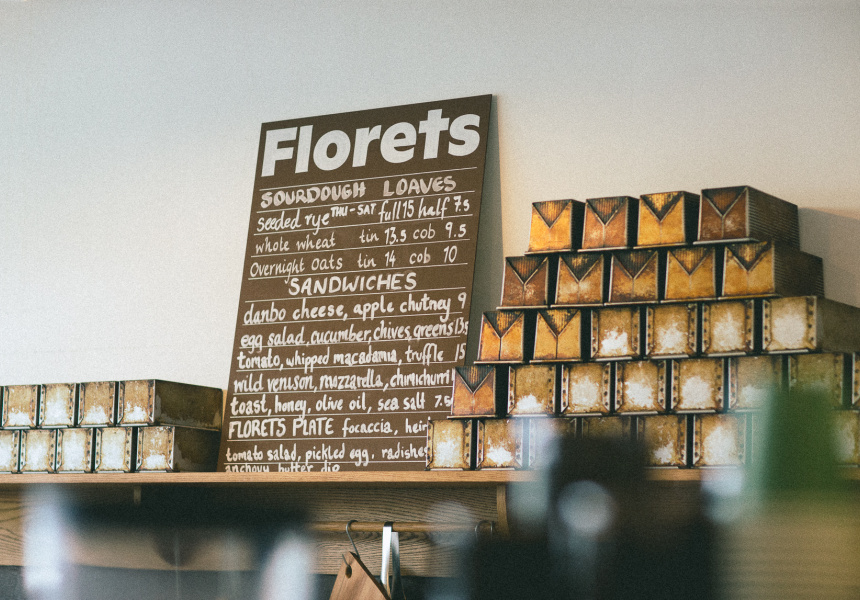 Florets
SOURDOUGH LOAVES
seeded rye THU-SAT full 15 half 7.5
whole wheat tin 13.5 cob 9.5
Overnight oats tin 14 cob 10
SANDWICHES
danbo cheese, apple chutney 9
egg salad, cucumber, chives, greens
tomato, whipped macadamia, truffle
wild venison, mozzarella, chimichurri
toast, honey, olive oil, sea salt 7.5
FLORETS PLATE focaccia,
tomato salad, pickled egg, radishes
anchovy butter